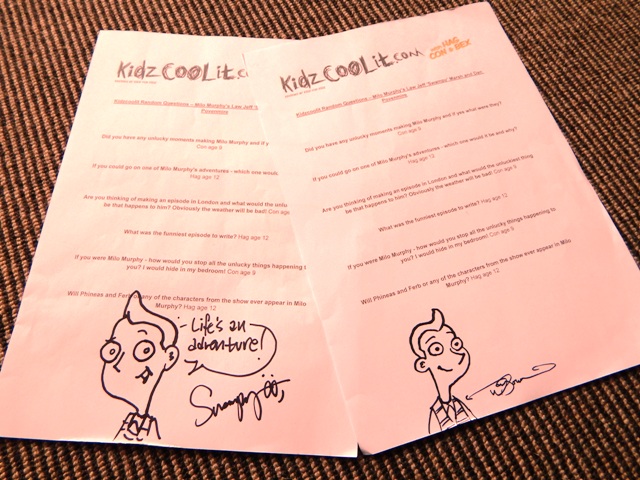 KidzCOOLit.co
Kidzcoolit Random Questions – Milo Murphy's Law Jeff 'S
Povenmire
Did you have any unlucky moments making Milo Murphy and if y
Con age 9
If you could go on one of Milo Murphy's adventures - which one woul
Hag age 12
Are you thinking of making an episode in London and what would the unlu
be that happens to him? Obviously the weather will be bad! Con age
What was the funniest episode to write? Hag age 12
If you were Milo Murphy - how would you stop all the unlucky things happening t
you? I would hide in my bedroom! Con age 9
Will Phineas and Ferb or any of the characters from the show ever appear in Milo
Murphy? Hag age 12
Life's an
adventure!
Swampy
KidzCOOLit.com
with HAG
CON & BEX
Kidzcoolit Random Questions – Milo Murphy's Law Jeff 'Swampy' Marsh and Dan
Povenmire
Did you have any unlucky moments making Milo Murphy and if yes what were they?
Con age 9
If you could go on one of Milo Murphy's adventures - which one would it be and why?
Hag age 12
Are you thinking of making an episode in London and what would the unluckiest thing
be that happens to him? Obviously the weather will be bad! Con age 9
What was the funniest episode to write? Hag age 12
If you were Milo Murphy - how would you stop all the unlucky things happening to
you? I would hide in my bedroom! Con age 9
Will Phineas and Ferb or any of the characters from the show ever appear in Milo
Murphy? Hag age 12